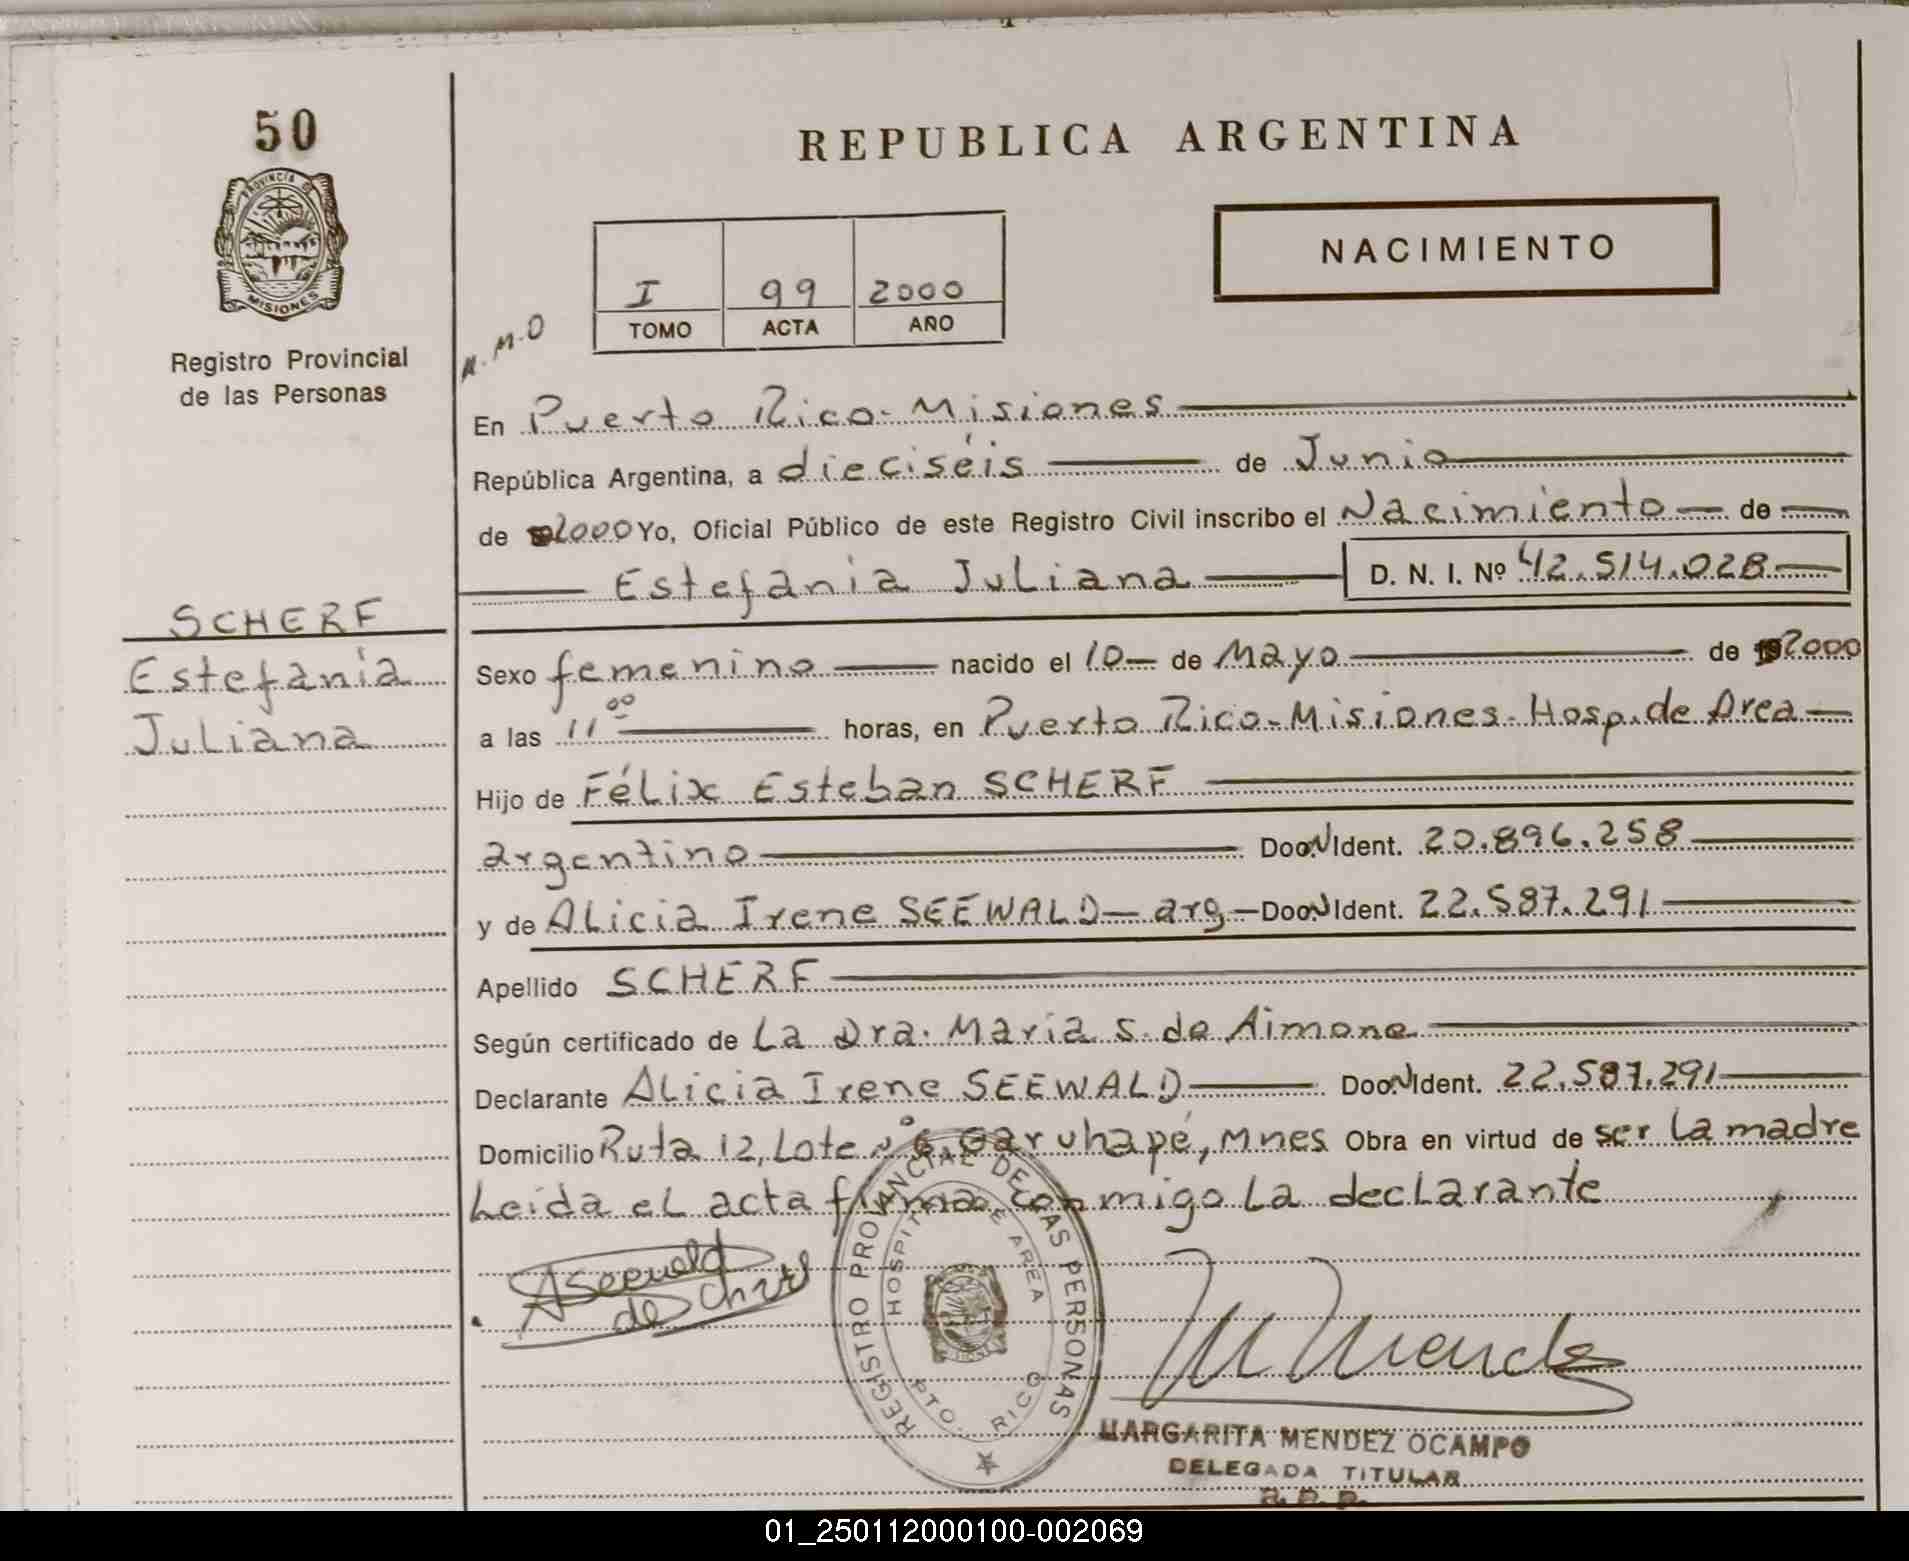 50
PROVINCIA DE
MISIONES
Registro Provincial
de las Personas
REPUBLICA ARGENTINA
NACIMIENTO
I 99 2000
TOMO ACTA AÑO
M.M.O
En Puerto Rico-Misiones
República Argentina, a dieciséis de Junio
de 2000 Yo, Oficial Público de este Registro Civil inscribo el Nacimiento de
Estefanía Juliana D. N. I. Nº 42.514.028
SCHERF
Estefanía
Juliana
Sexo femenino nacido el 10 de Mayo de 2000
a las 11 00 horas, en Puerto Rico-Misiones-Hosp. de Area
Hijo de Félix Esteban SCHERF
argentino Doc.N Ident. 20.896.258
y de Alicia Irene SEEWALD - arg - Doc.N Ident. 22.587.291
Apellido SCHERF
Según certificado de La Dra. María S. de Aimone
Declarante Alicia Irene SEEWALD Doc.N Ident. 22.587.291
Domicilio Ruta 12, Lote nº 6, Garuhapé, Mnes Obra en virtud de ser la madre
Leída el acta firma conmigo la declarante
ASeewald
de
REGISTRO PROVINCIAL DE LAS PERSONAS
HOSPITAL DE AREA
PTO. RICO
M Mendez
MARGARITA MENDEZ OCAMPO
DELEGADA TITULAR
R.P.P.
01_250112000100-002069